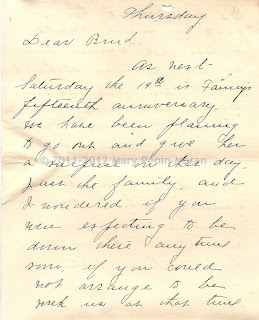 Thursday
Dear Brud.
As next
Saturday the 19th is Fanny's
fifteenth anniversary
we have been planning
to go out and give her
a on her day.
Just the family, and
I wondered if you
were expecting to be
down there anytime
soon, if you could
not arrange to be
with us at that time.